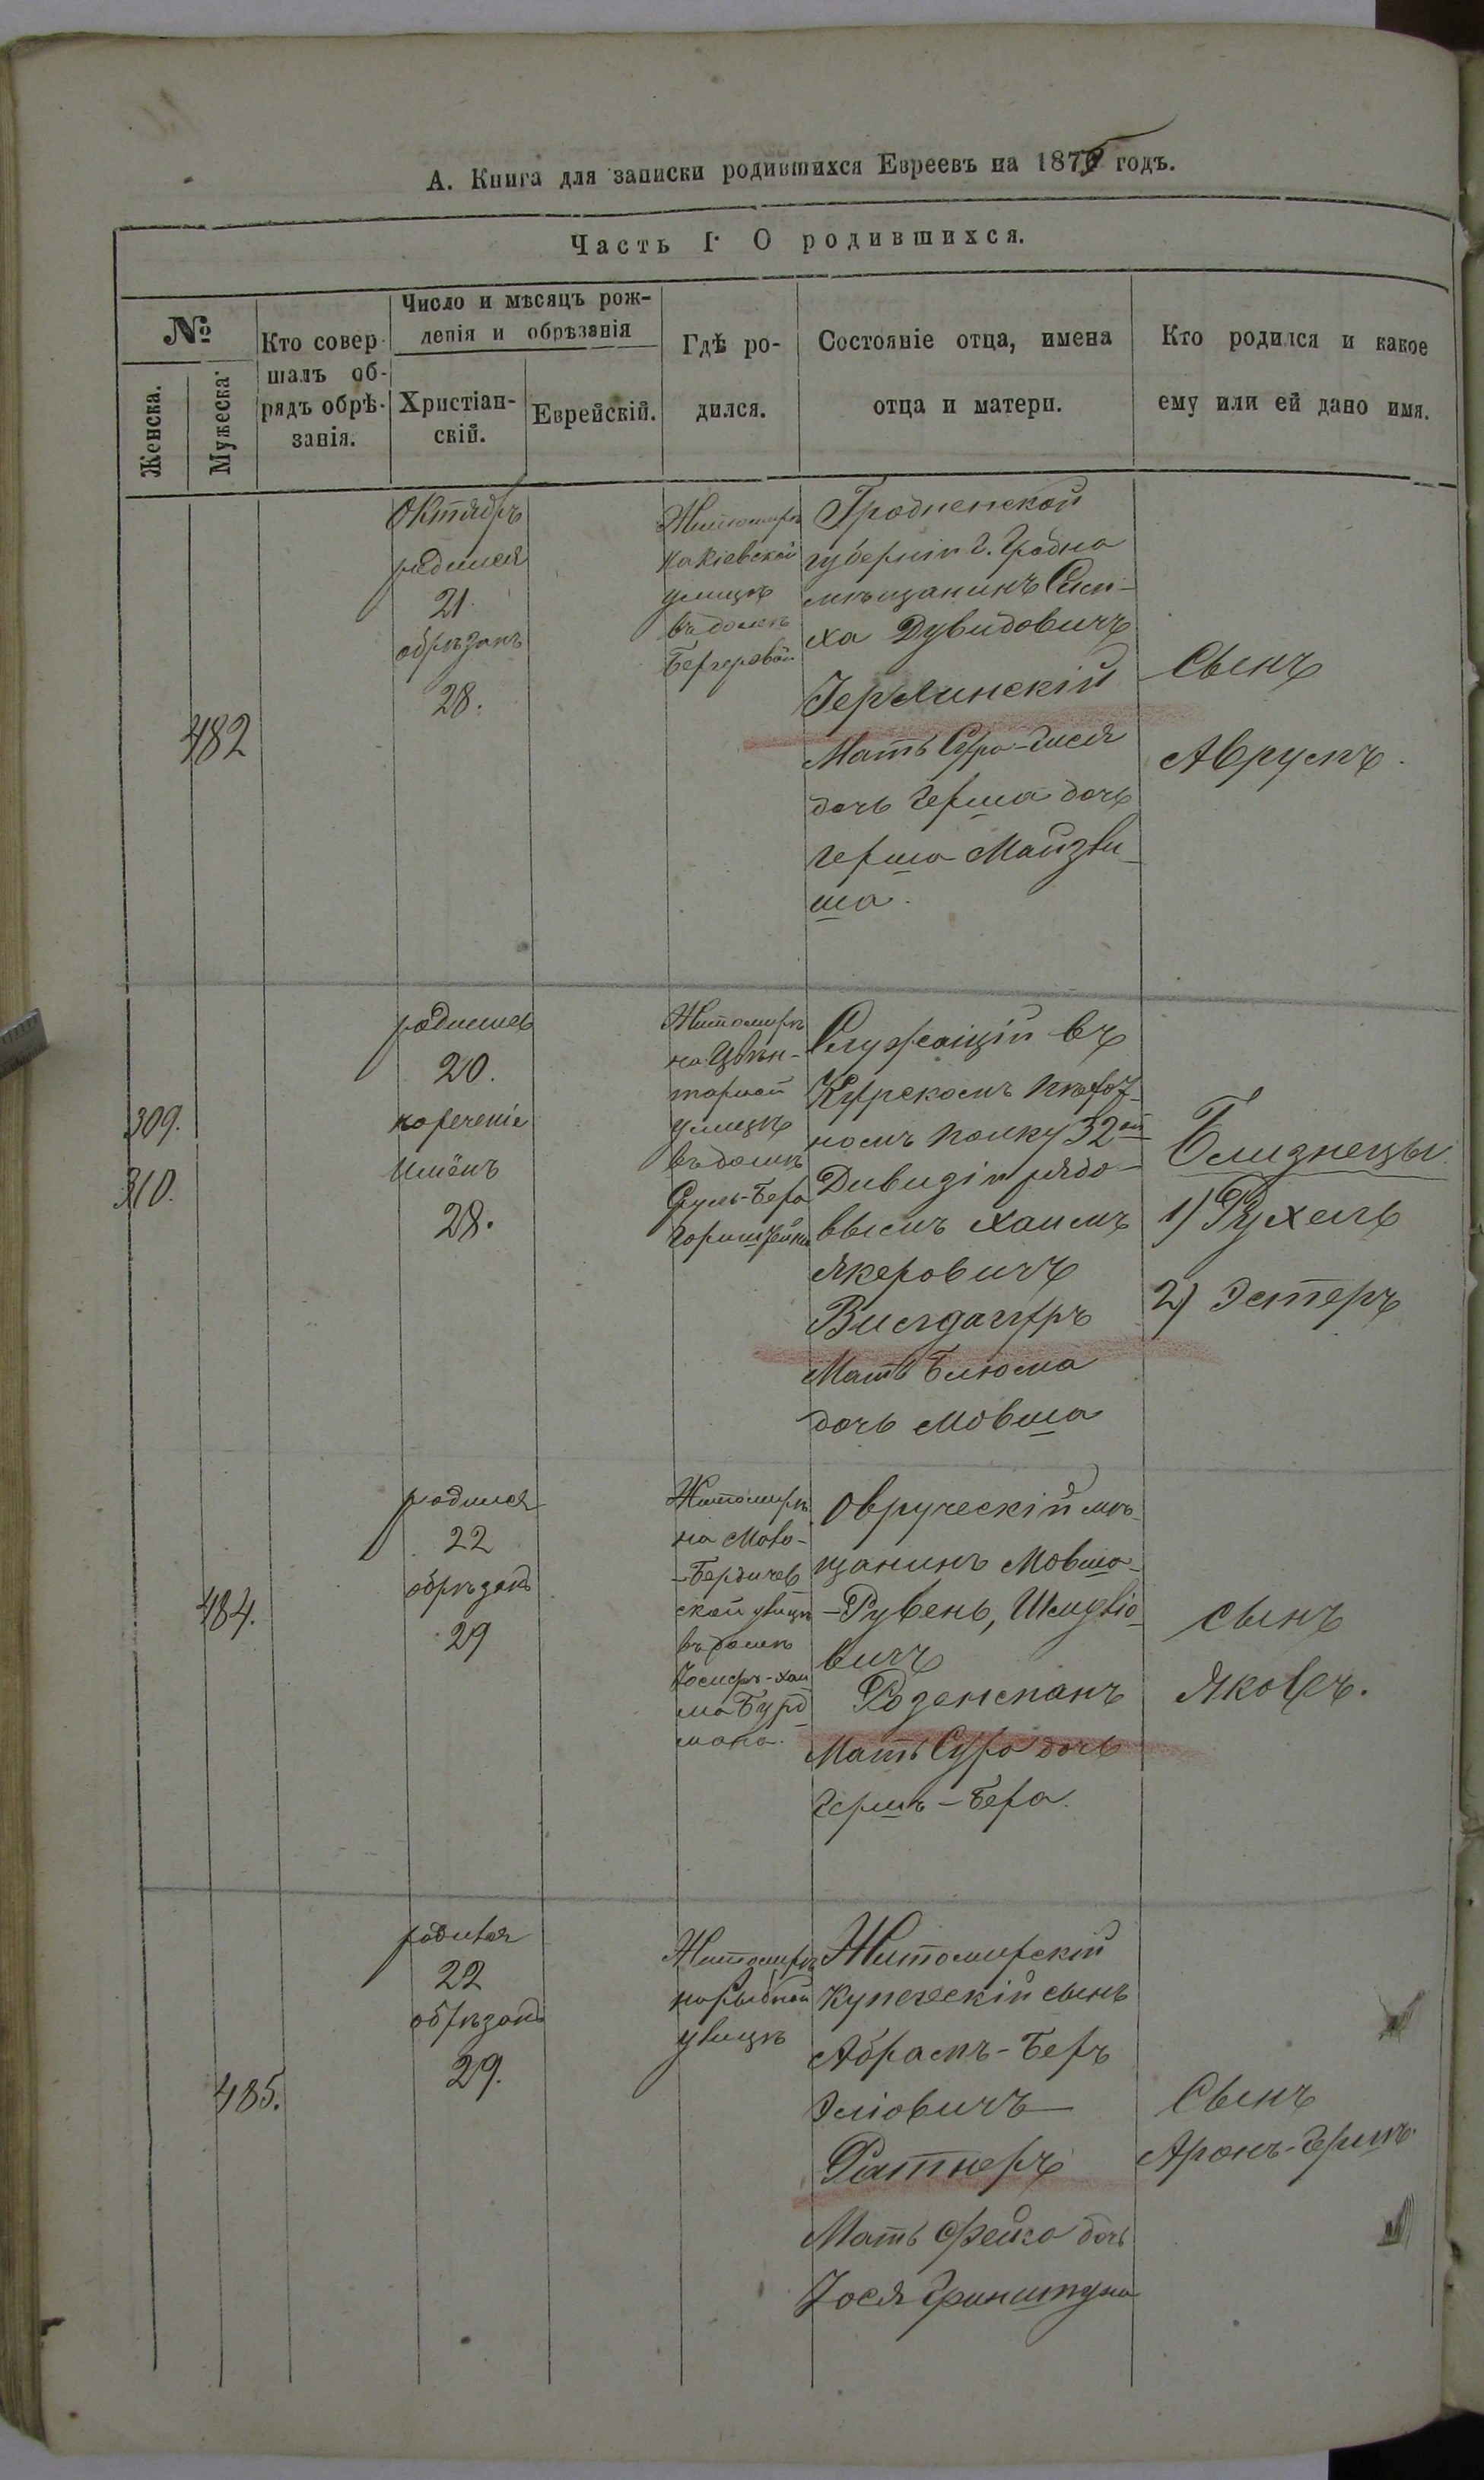 А. Книга для записки родившихся Евреевъ на 1875 годъ.
Часть I. О родившихся.
№
Женска.
Мужеска.
Кто совер-
шалъ об-
рядъ обрѣ-
занія.
Число и мѣсяцъ рож-
денія и обрѣзанія
Христіан-
скій.
Еврейскій.
Гдѣ ро-
дился.
Состояніе отца, имена
отца и матери.
Кто родился и какое
ему или ей дано имя.
482
Октябрь
родился
21
обрѣзанъ
28.
Житомиръ
на Кіевской
улицѣ
въ домѣ
Бергеровой
Гродненской
губерніи г. Гродна
мѣщанинъ Сим-
ха Дувидовичъ
Герлинскій
Мать Сура-
дочь Герша дочь
Герша Майзли-
ша.
Сынъ
Аврумъ.
309.
310.
родились
20.
нареченіе
имёнъ
28.
Житомиръ
на Цвин-
тарной
улицѣ
въ домѣ
Сруль-Бера
Служащій въ
Курскомъ пѣхот-
номъ полку 32ой
Дивизіи рядо-
вымъ Хаимъ
Якеровичъ
Мать Блюма
дочь Мовша
Близнецы
1) Рухель
2) Эстеръ
484.
родился
22
обрѣзанъ
29
Житомиръ
на Мало-
-Бердичев
ской улицѣ
въ домѣ
Іосифъ-Хаи
ма Бурд
мана.
Овруческій мѣ-
щанинъ Мовша-
-Рувень, Шмулiо-
вичъ
Розенманъ
Мать Сура дочь
Гершъ-Бера.
сынъ
Яковъ.
485.
родился
22
обрѣзанъ
29.
Житомиръ
на Рыбной
улицѣ
Житомирскій
купеческій сынъ
Абрамъ-Беръ
Эліовичъ
Ратнеръ
Мать Фейга дочь
Іося
Сынъ
Аронъ-Гершъ.